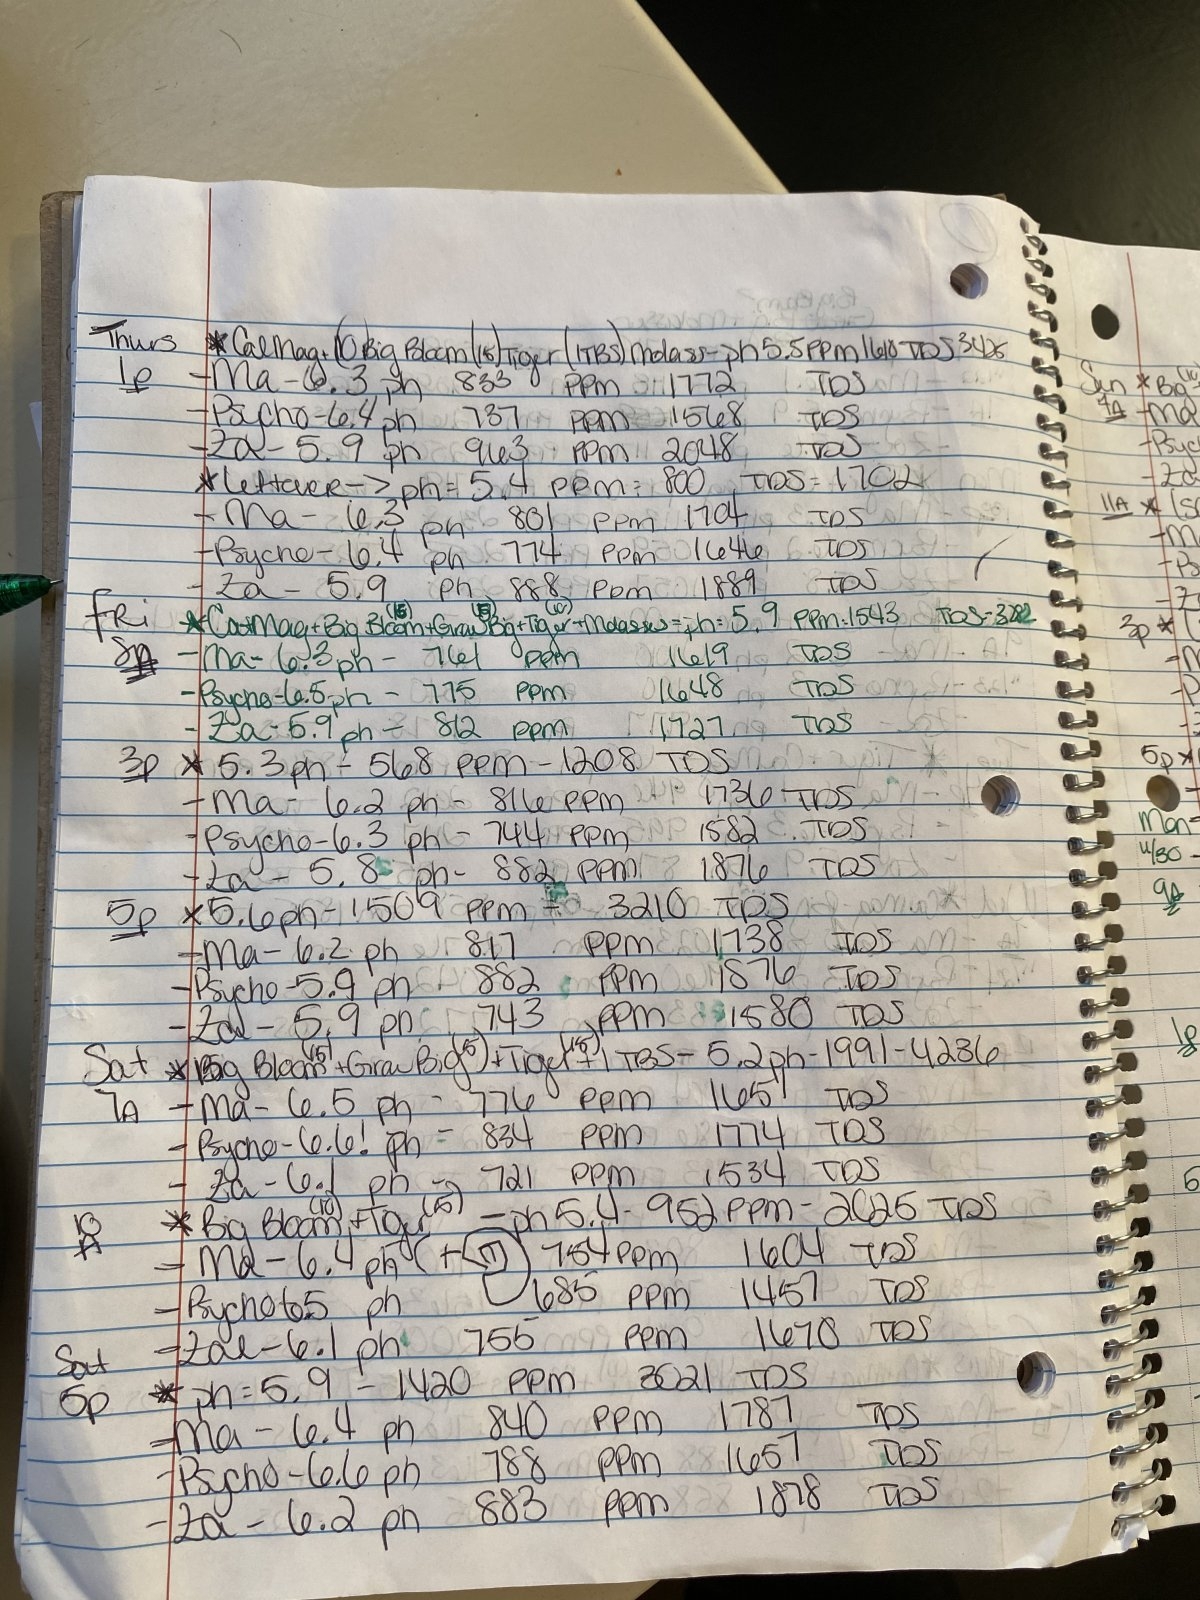 Thurs *CalMag+(10 Big Bloom(15)Tiger(1TBS)molass-ph5.5PPM1610TDS3425
1p -Ma-6.3 ph 833 PPM 1772 TDS
-Psycho-6.4 ph 737 PPM 1568 TDS
-Za-5.9 ph 963 PPM 2048 TDS
*Leftover-> ph=5.4 PPM=800 TDS=1702
-Ma-6.3 ph 801 PPM 1704 TDS
-Psycho-6.4 ph 774 PPM 1646 TDS
-Za-5.9 ph 888 PPM 1889 TDS
FRi *CalMag+Big Bloom(15)+Grow Big(5)+Tiger(10)+Molasses=ph=5.9 PPM=1543 TDS=3282
-Ma-6.3ph-761 PPM 1619 TDS
-Psycho-6.5ph-775 PPM 1648 TDS
-Za-5.9ph-812 PPM 1727 TDS
3p *5.3ph-568 PPM-1208 TDS
-Ma-6.2 ph-816 PPM 1736 TDS
-Psycho-6.3 ph-744 PPM 1582 TDS
-Za-5.8 ph-882 PPM 1876 TDS
5p *5.6ph-1509 PPM - 3210 TDS
-Ma-6.2 ph 817 PPM 1738 TDS
-Psycho-5.9 ph 882 PPM 1876 TDS
-Za-5.9 ph 743 PPM 1580 TDS
Sat *Big Bloom(15)+Grow Big(5)+Tiger(15)+1TBS-5.2ph-1991-4236
7A -Ma-6.5 ph-776 PPM 1651 TDS
-Psycho-6.6! ph-834 PPM 1774 TDS
-Za-6.1 ph-721 PPM 1534 TDS
10A *Big Bloom(10)+Tiger(5)-ph5.4-952PPM-2025 TDS
-Ma-6.4 ph 754PPM 1604 TDS
-Psycho 6.5 ph 685 PPM 1457 TDS
-Za-6.1 ph 755 PPM 1670 TDS
Sat
5p *ph=5.9-1420 PPM 3021 TDS
-Ma-6.4 ph 840 PPM 1787 TDS
-Psycho-6.6 ph 788 PPM 1657 TDS
-Za-6.2 ph 883 PPM 1878 TDS
Sun *Big
7A -Ma
-Psyc
-Za
11A *
3p *
5p *
Mon-
4/30
9A
1p